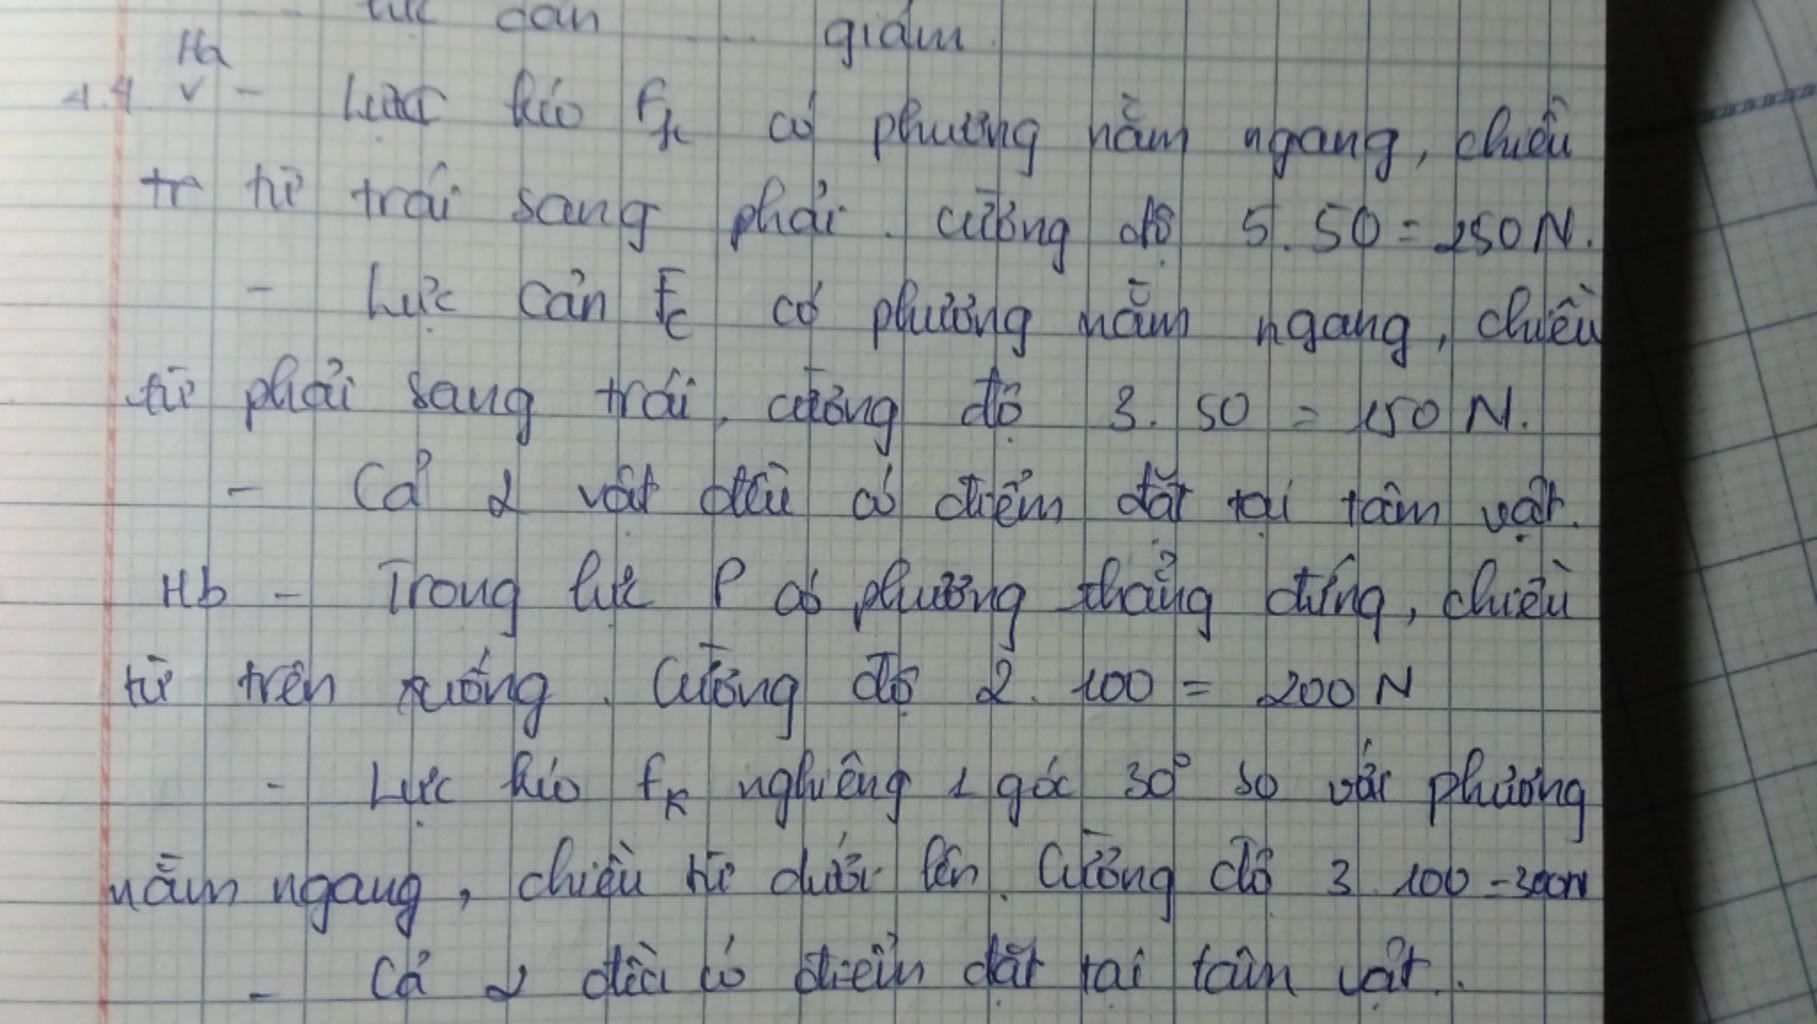 lực cản ... giảm.
Ha
4.4 v - Lực kéo Fk có phương nằm ngang, chiều
tr từ trái sang phải. cường độ 5. 50 = 250 N.
- Lực cản Fc có phương nằm ngang, chiều
từ phải sang trái, cường độ 3. 50 = 150 N.
- Cả 2 vật đều có điểm đặt tại tâm vật.
Hb - Trong lực P có phương thẳng đứng, chiều
từ trên xuống. Cường độ 2. 100 = 200 N
- Lực kéo fk nghiêng 1 góc 30° so với phương
nằm ngang, chiều từ dưới lên. Cường độ 3 100 = 300N
- Cả 2 đều có điểm đặt tại tâm vật.